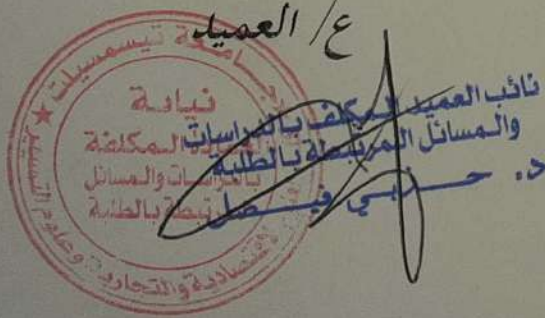 ع/ العميد
نائب العميد المكلف بالدراسات
والمسائل المرتبطة بالطلبة
د. حربي فيصل
جامعة تيسمسيلت
نيابة
العمادة المكلفة
بالدراسات والمسائل
المرتبطة بالطلبة
الاقتصادية والتجارية وعلوم التسيير